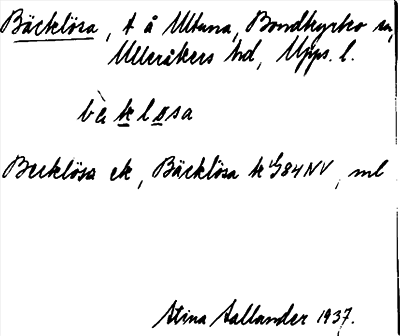 Bäcklösa, t å Ultuna, Bondkyrko sn,
Ulleråkers hd, Upps. l.
bäklo̱sa
Becklösa ek, Bäcklösa k 4/984 NV, ml
Stina Sallander 1937.